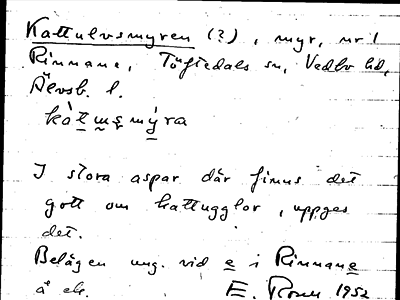 Kattulvsmyren (?), myr, nr 1
Rinnane, Töftedals sn, Vedbo hd,
Älvsb. l.
I stora aspar där finns det
gott om kattugglor, uppges
det.
Belägen ung. vid e i Rinnane
å ek. E. 1952